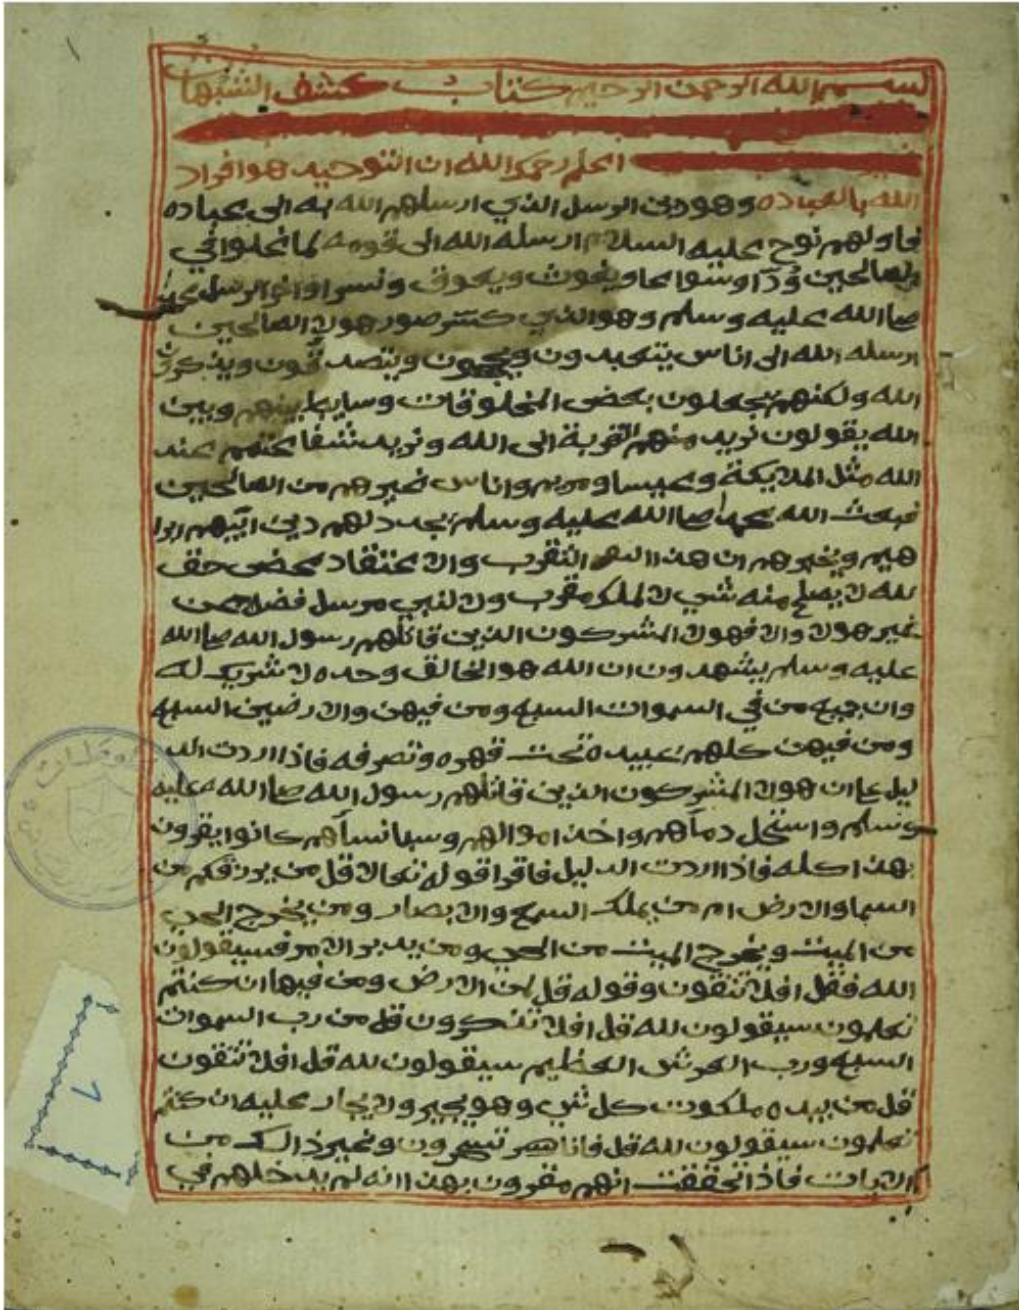 بسم الله الرحمن الرحيم كتاب كشف الشبهات
اعلم رحمك الله ان التوحيد هو افراد
الله بالعباده وهو دين الرسل الذي ارسلهم الله به الى عباده
فاولهم نوح عليه السلام ارسله الله الى قومه لما غلوا في
الصالحين ودا وسواعا ويغوث ويعوق ونسرا واخر الرسل محمد
صلا الله عليه وسلم وهو الذي كسر صور هولا الصالحين
ارسله الله الى اناس يتعبدون ويحجون ويتصدقون ويذكرون
الله ولكنهم يجعلون بعض المخلوقات وسايط بينهم وبين
الله يقولون نريد منهم القربة الى الله ونريد شفاعتهم عند
الله مثل الملايكة وعيسا ومريم واناس غيرهم من الصالحين
فبعث الله محمدا صلا الله عليه وسلم يجدد لهم دين ابيهم ابرا
هيم ويخبرهم ان هذا التقرب والاعتقاد محض حق
لله لا يصلح منه شي لا لملك مقرب ولا لنبي مرسل فضلا عن
غيرهولا والا فهولا المشركون الذين قاتلهم رسول الله صلا الله
عليه وسلم يشهدون ان الله هو الخالق وحده لا شريك له
وان جميع من في السموات السبع ومن فيهن والارضين السبع
ومن فيهن كلهم عبيده تحت قهره وتصرفه فاذا اردت الد
ليل علا ان هولا المشركون الذين قاتلهم رسول الله صلا الله عليه
وسلم واستحل دمآهم واخذ اموالهم وسبا نسآهم كانوا يقرون
بهذا كله فاذا اردت الدليل فاقرا قوله تعالا قل من يرزقكم من
السما والارض ام من يملك السمع والابصار ومن يخرج الحي
من الميت ويخرج الميت من الحي ومن يدبر الامر فسيقولون
الله فقل افلا تتقون وقوله قل لمن الارض ومن فيها ان كنتم
تعلمون سيقولون لله قل افلا تذكرون قل من رب السموات
السبع ورب العرش العظيم سيقولون لله قل افلا تتقون
قل من بيده ملكوت كل شي وهو يجير ولا يجار عليه ان كنتم
تعلمون سيقولون لله قل فانا تسحرون وغير ذالك من
الايات فاذا تحققت انهم مقرون بهذا انه لم يدخلهم في
١